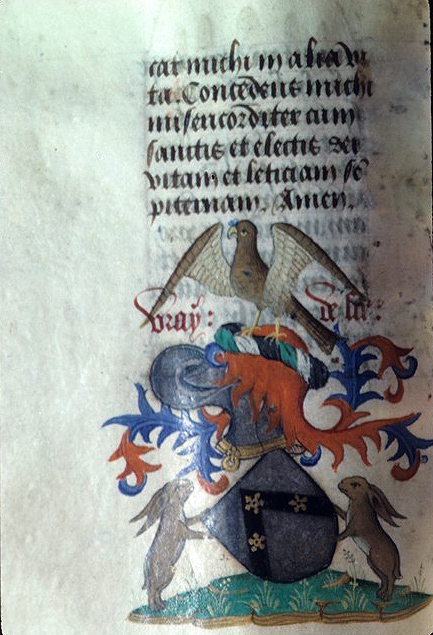 cat michi in alia vi
ta. Concedens michi
misericorditer cum
sanctis et electis dei
vitam et leticiam se
piternam. Amen.
Vray: